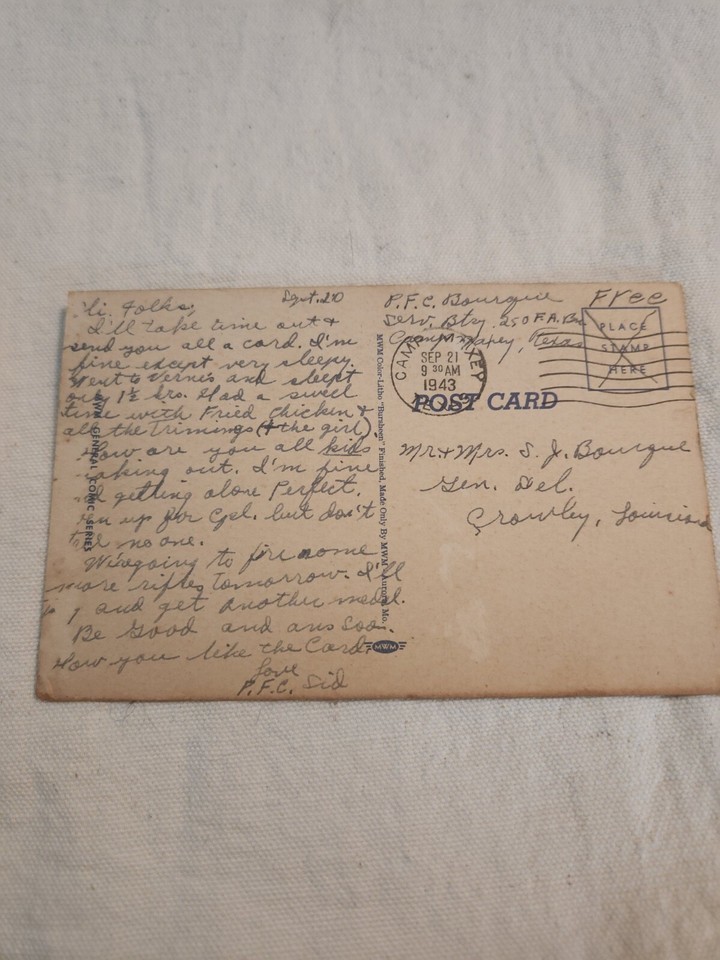 Hi. Folks; Sept. 20
I'll take time out &
send you all a card. I'm
fine except very sleepy.
Went to Vernis and slept
only 1½ hrs. Had a swell
time with Fried Chicken &
all the Trimings (& the girl)
How are you all kids
making out. I'm fine
and getting alone Perfect.
I'm up for Cpl. but don't
tell no one.
We're going to fire some
more rifles tomorrow. I'll
try and get another medal.
Be Good and ans Soon.
How you like the Card.
Love
P.F.C. Sid
MWM GENERAL COMIC SERIES
MWM Color-Litho "Burnhorn" Finished, Made Only By MWM Aurora, Mo.
MWM
P.F.C. Bourque
Serv. Btry. 250 F.A. Bn
Camp Maxey, Texas
Free
PLACE
STAMP
HERE
CAMP MAXEY
SEP 21
9 30 AM
1943
POST CARD
Mr. & Mrs. S. J. Bourque
Gen. Del.
Crowley, Louisiana